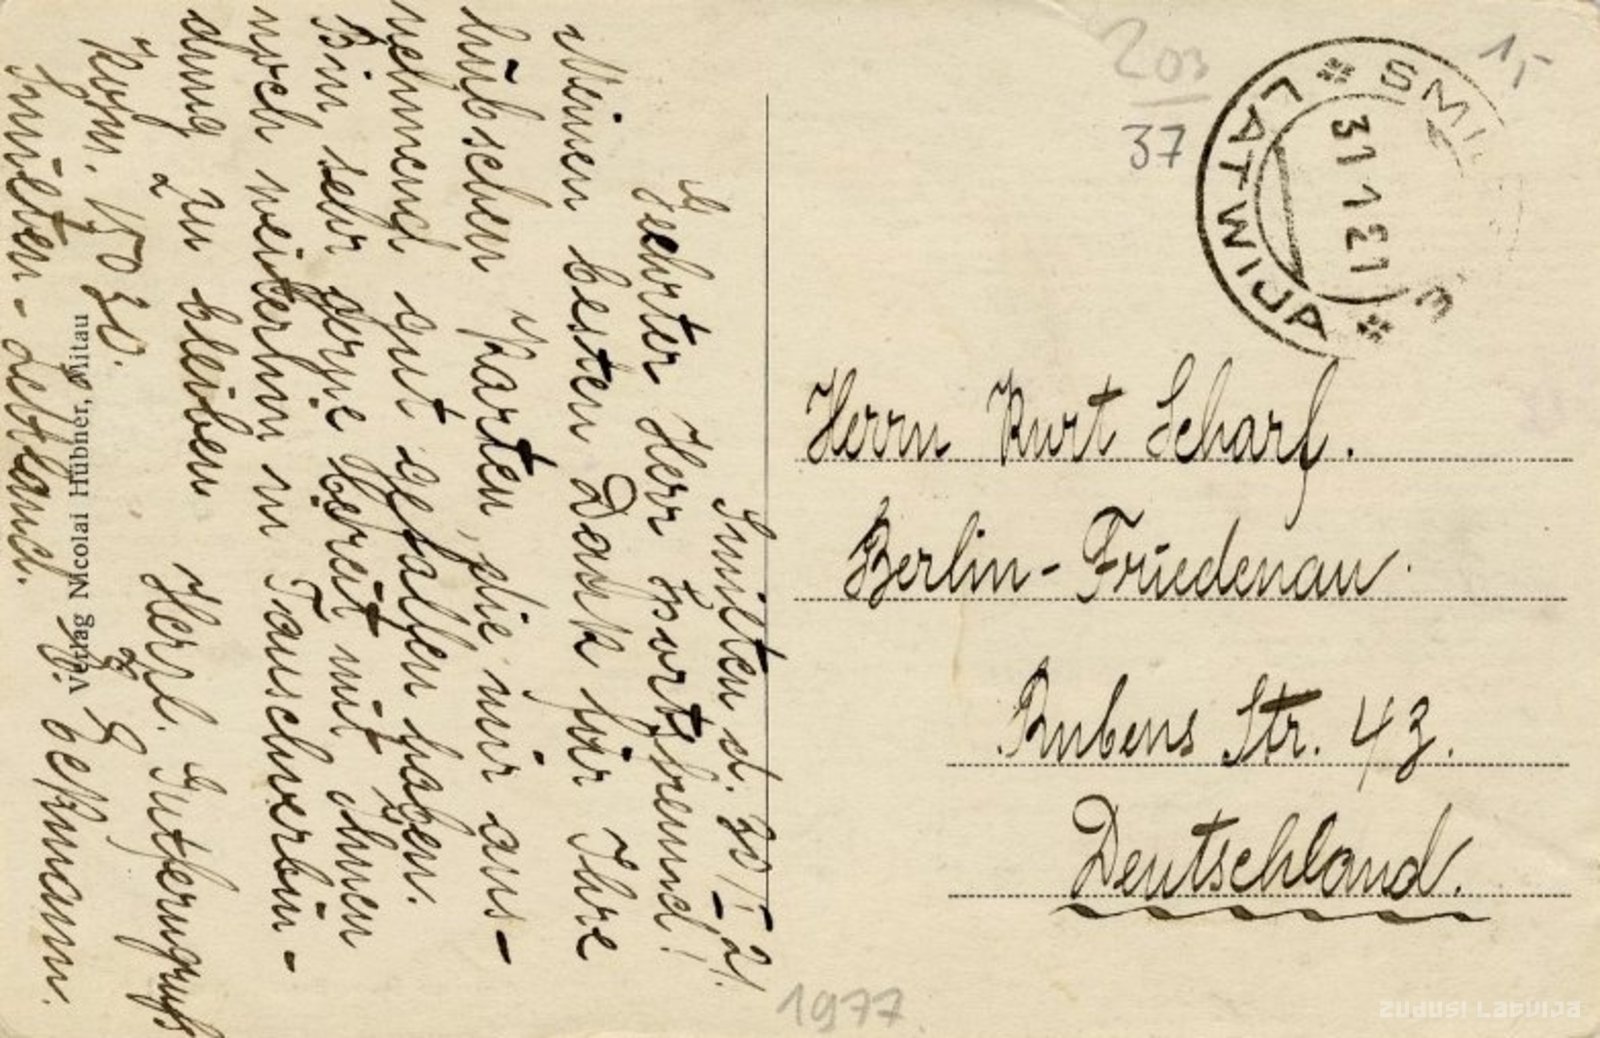 Smilten d. 30/I-21.
Geehrter Herr Sportsfreund!
Meinen besten Dank für Ihre
hübschen Karten, die mir aus-
nehmend gut gefallen haben.
Bin sehr gerne bereit mit Ihnen
noch weiterhin in Tauschverbin-
dung zu bleiben
Herzl. Gutferngruß
Kosm. 15030.
E. Beckmann.
Smilten - Lettland.
Verlag Nicolai Hübner, Mitau
203
37
1,-
SMI E
LATWIJA
31 1 21
Herrn Kurt Scharf.
Berlin-Friedenau.
Rubens Str. 43.
Deutschland.
1977
zudusi Latvija